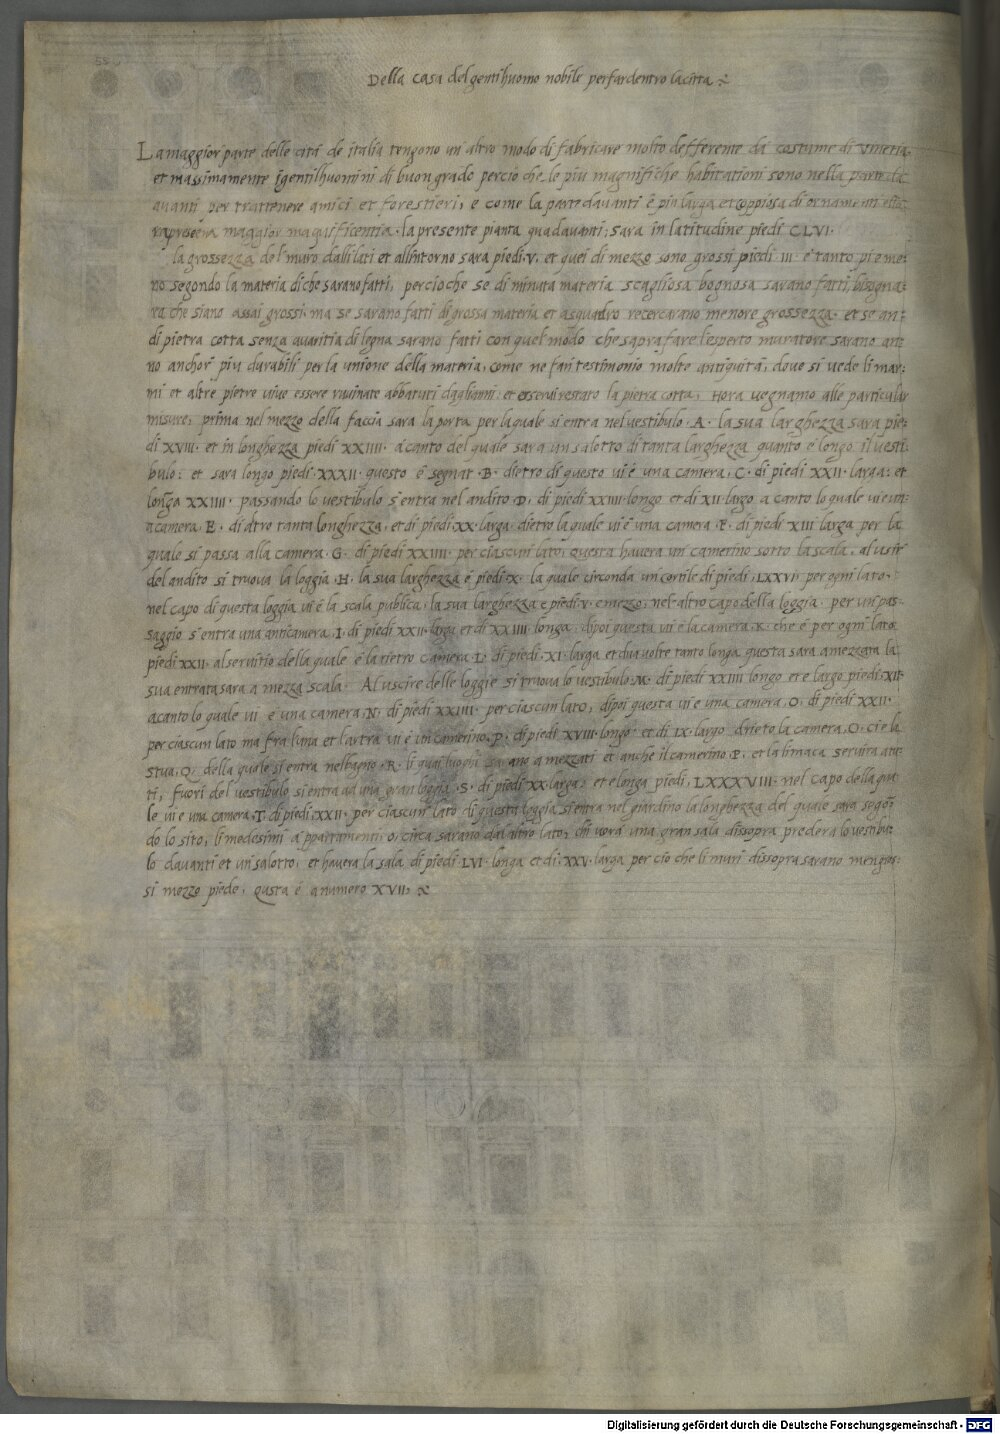 Della casa del gentilhuomo nobile per far dentro la citta
La maggior parte delle cità de italia tengono un altro modo di fabricare molto defferente da costume di Venetia
et massimamente i gentilhuomini di buon grado percio che le piu magnifiche habitationi sono nella parte da
avanti per trattenere amici et forestieri, e come la parte davanti è piu larga et coppiosa di ornamenti
maggior magnificentia. la presente pianta qua davanti, sara in latitudine piedi CLVI.
la grossezza del muro dalli lati et all intorno sara piedi. V, et quei di mezzo sono grossi piedi. III. e tanto piu me-
no segondo la materia di che sarano fatti, percioche se di minuta materia scagliosa bognosa sarano fatti, bisogna-
ra che siano assai grossi. ma se sarano fatti di grossa materia et a squadro recercarano menore grossezza. et se an-
di pietra cotta senza quantita di legna sarano fatti con quel modo che sapra fare l'esperto muratore sarano an-
no anchor piu durabili per la unione della materia, come ne fan testimonio molte antiquità, dove si vede li mar-
mi et altre pietre vive essere ruvinate abbatuti et esservi restato la pietra cotta, Hora vegnamo alle particular
misure, prima nel mezzo della faccia sara la porta per la quale si entra nel vestibulo. A. la sua larghezza sara pie-
di XVIII. et in longhezza piedi XXIIII. a canto del quale sara un salotto di tanta larghezza quanto è longo il vesti-
bulo: et sara longo piedi XXXII. questo è segnat. B. dietro di questo vi è una camera, C. di piedi XXII. larga: et
longa XXIIII. passando lo vestibulo s'entra nel andito D, di piedi XXIIII. longo et di XII. largo a canto lo quale vi è un
a camera, E. di altro tanta longhezza, et di piedi XX. larga, dietro la quale vi è una camera F. di piedi XIII larga per la
quale si passa alla camera G. di piedi XXIIII. per ciascun lato, questa havera un camerino sotto la scala, al usir
del andito si truova la loggia. H. la sua larghezza è piedi X. la quale circonda un cortile di piedi, LXXVI. per ogni lato.
nel capo di questa loggia vi è la scala publica, la sua larghezza e piedi. V. e mezzo, nel altro capo della loggia per un pas-
saggio s'entra una anticamera, I. di piedi XXII. larga et di XXIIII. longa. dipoi questa vi è la camera. K. che è per ogni lato
piedi XXII, al servitio della quale è la rietro camera L. di piedi. XI. larga et dua volte tanto longa, questa sara amezzata la
sua entrata sara a mezza scala. Al uscire delle loggie si truova lo vestibulo M. di piedi XXIIII longo et e largo piedi. XII
a canto lo quale vi è una camera, N. di piedi XXIIII. per ciascun lato, dipoi questa vi è una camera, O. di piedi XXII.
per ciascun lato ma fra l'una et l'altra vi è un camerino, P. di piedi XVIII. longo et di IX. largo drieto la camera, O. ci è la
stua, Q. della quale si entra nel bagno. R. li quai luoghi sarano amezzati et anche il camerino P. et la limaca servira a tu-
ti, Fuori del vestibulo si entra ad una gran loggia. S. di piedi XX. larga: et e longa piedi, LXXXVIII. nel capo della qua
le vi è una camera. T. di piedi. XXII. per ciascun lato di questa loggia si entra nel giardino la longhezza del quale sara segon-
do lo sito, li medesimi appartamenti o circa sarano dal altro lato, chi vora una gran sala dissopra predera lo vestibu-
lo davanti et un salotto, et havera la sala di piedi LVI. longa et di. XXV. larga per cio che li muri dissopra sarano
si mezzo piede, questa è a numero XVII.
Digitalisierung gefördert durch die Deutsche Forschungsgemeinschaft - DFG